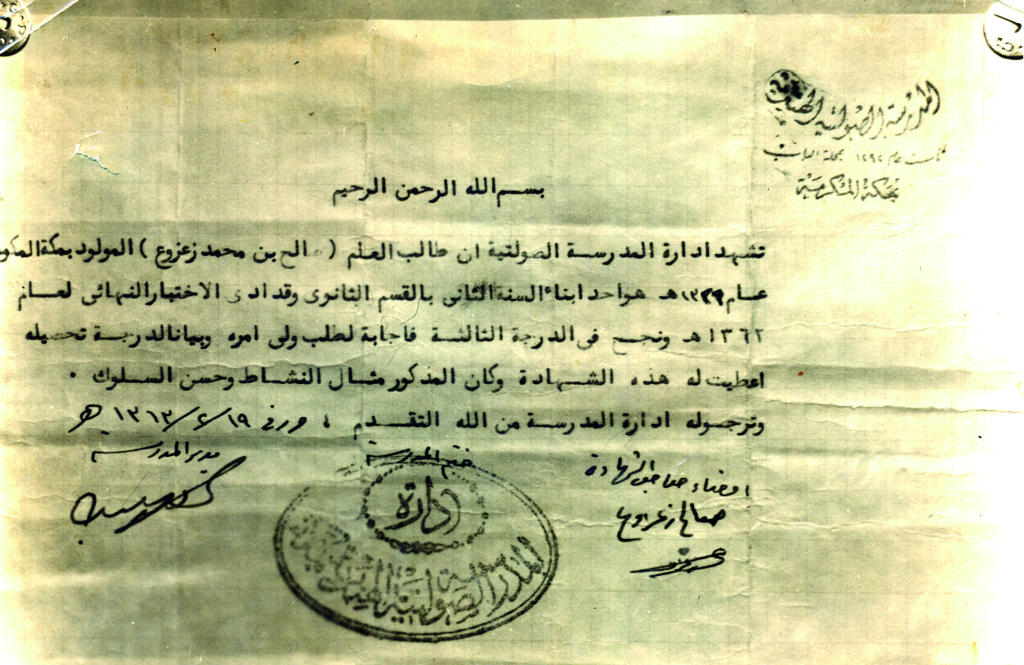 المدرسة الصولتية الهندية
تأسست عام ١٢٩٢ بمحلة الباب
بمكة المكرمة
بسم الله الرحمن الرحيم
تشهد ادارة المدرسة الصولتية ان طالب العلم ( صالح بن محمد زعزوع ) المولود بمكة المكر
عام ١٣٢٩هـ هو احد ابناء السنة الثانى بالقسم الثانوى وقد ادى الاختبار النهائى لعام
١٣٦٢هـ ونجح فى الدرجة الثالثة فاجابة لطلب ولى امره وبيانا لدرجة تحصيله
اعطيت له هذه الشهادة وكان المذكور مثال النشاط وحسن السلوك .
وترجو له ادارة المدرسة من الله التقدم ، حرر فى ١٩/٢/١٣٦٣ هـ
امضاء صاحب الشهادة
صالح زعزوع
ختم المدرسة
مدير المدرسة
ادارة
المدرسة الصولتية الهندية